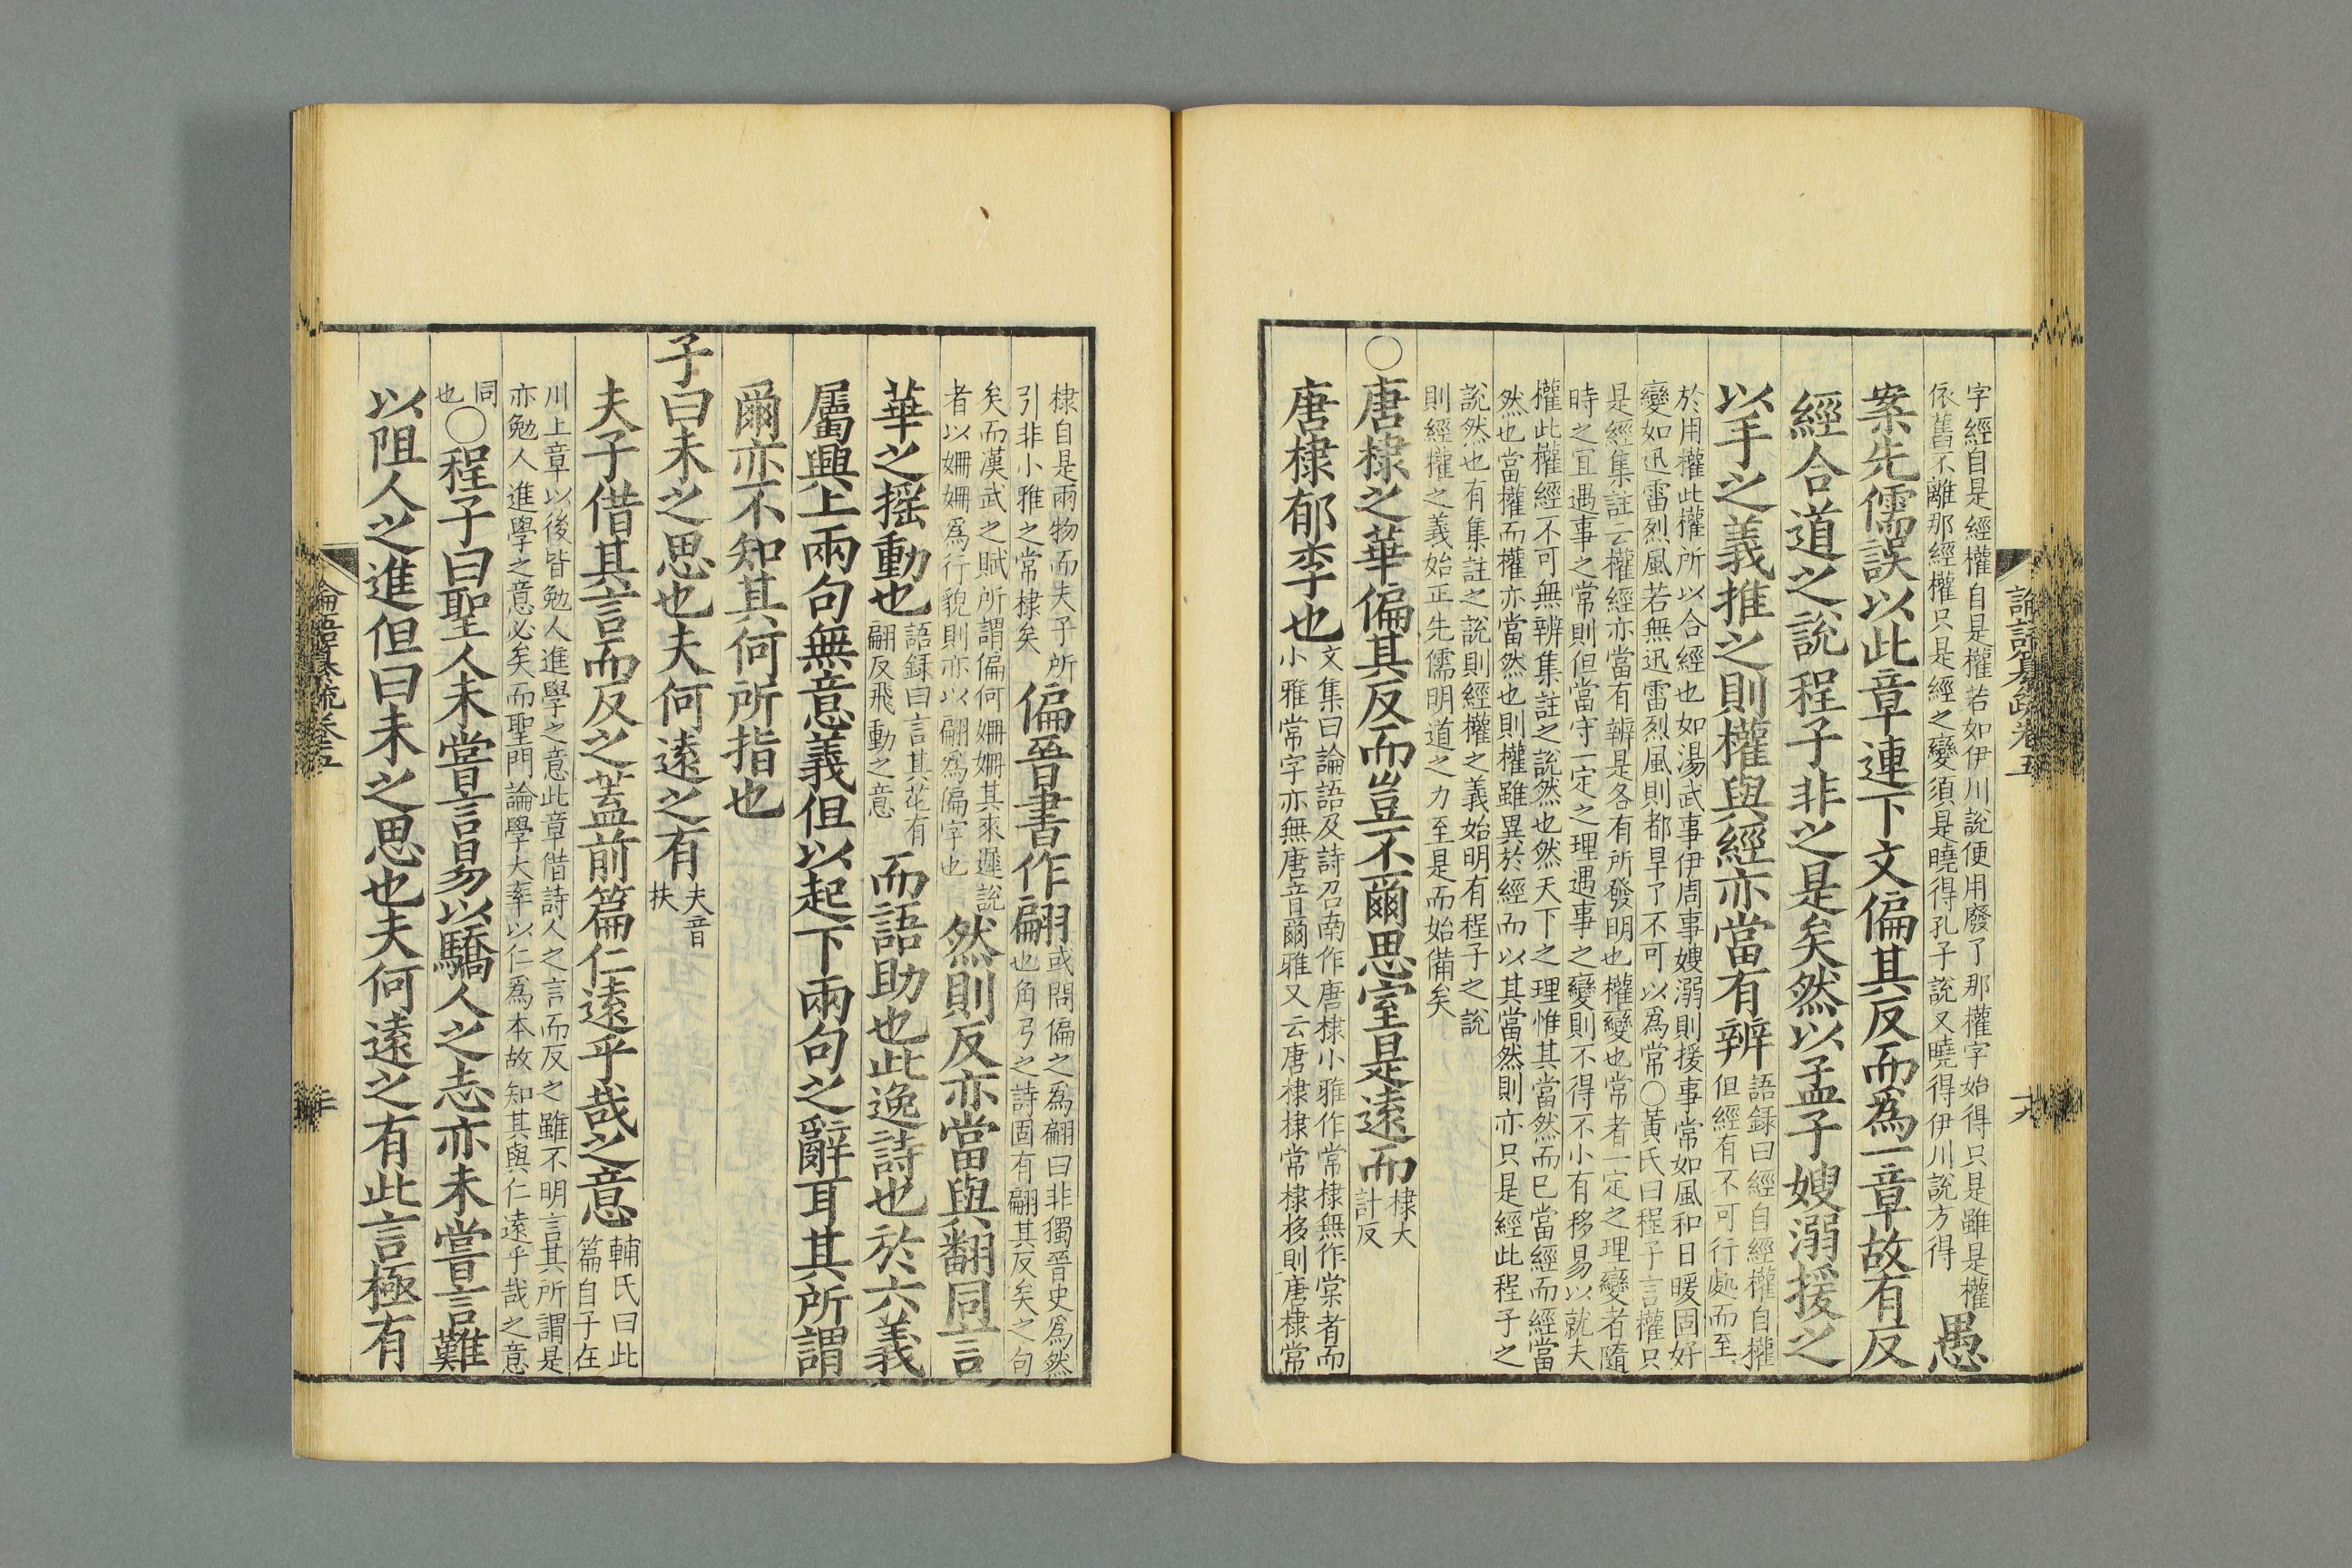 字經自是經權自是權若如伊川說便用廢了那權字始得只是雖是權
依舊不離那經權只是經之變須是曉得孔子說又曉得伊川說方得
愚
案先儒誤以此章連下文偏其反而為一章故有反
經合道之說程子非之是矣然以孟子嫂溺援之
以手之義推之則權與經亦當有辨
語録曰經自經權自權
但經有不可行處而至
於用權此權所以合經也如湯武事伊周事嫂溺則援事常如風和日暖固好
變如迅雷烈風若無迅雷烈風則都旱了不可以為常○黃氏曰程子言權只
是經集註云權經亦當有辨是各有所發明也權變也常者一定之理變者隨
時之宜遇事之常則但當守一定之理遇事之變則不得不小有移易以就夫
權此權經不可無辨集註之說然也然天下之理惟其當然而已當經而經當
然也當權而權亦當然也則權雖異於經而以其當然則亦只是經此程子之
說然也有集註之說則經權之義始明有程子之說
則經權之義始正先儒明道之力至是而始備矣
○唐棣之華偏其反而豈不爾思室是遠而
棣大
計反
唐棣郁李也
文集曰論語及詩召南作唐棣小雅作常棣無作棠者而
小雅常字亦無唐音爾雅又云唐棣棣常棣栘則唐棣常
論語纂疏卷五
十九
棣自是兩物而夫子所
引非小雅之常棣矣
偏晉書作翩
或問偏之為翩曰非獨晉史為然
也角弓之詩固有翩其反矣之句
矣而漢武之賦所謂偏何姍姍其來遲說
者以姍姍為行貌則亦以翩為偏字也
然則反亦當與翻同言
華之搖動也
語録曰言其花有
翩反飛動之意
而語助也此逸詩也於六義
屬興上兩句無意義但以起下兩句之辭耳其所謂
爾亦不知其何所指也
子曰未之思也夫何遠之有
夫音
扶
夫子借其言而反之蓋前篇仁遠乎哉之意
輔氏曰此
篇自子在
川上章以後皆勉人進學之意此章借詩人之言而反之雖不明言其所謂是
亦勉人進學之意必矣而聖門論學大率以仁為本故知其與仁遠乎哉之意
同
也
○程子曰聖人未嘗言易以驕人之志亦未嘗言難
以阻人之進但曰未之思也夫何遠之有此言極有
論語纂疏卷五